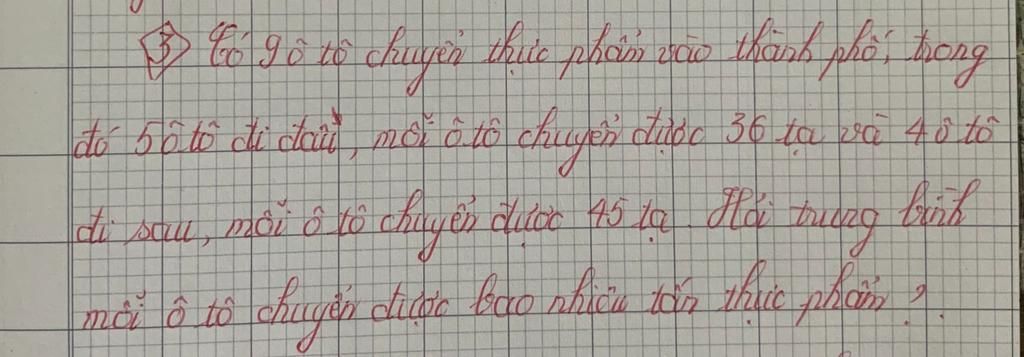 ③ Có 9 ô tô chuyển thực phẩm vào thành phố, trong
đó 5 ô tô đi đầu, mỗi ô tô chuyển được 36 tạ và 4 ô tô
đi sau, mỗi ô tô chuyển được 45 tạ. Hỏi trung bình
mỗi ô tô chuyển được bao nhiêu tấn thực phẩm?